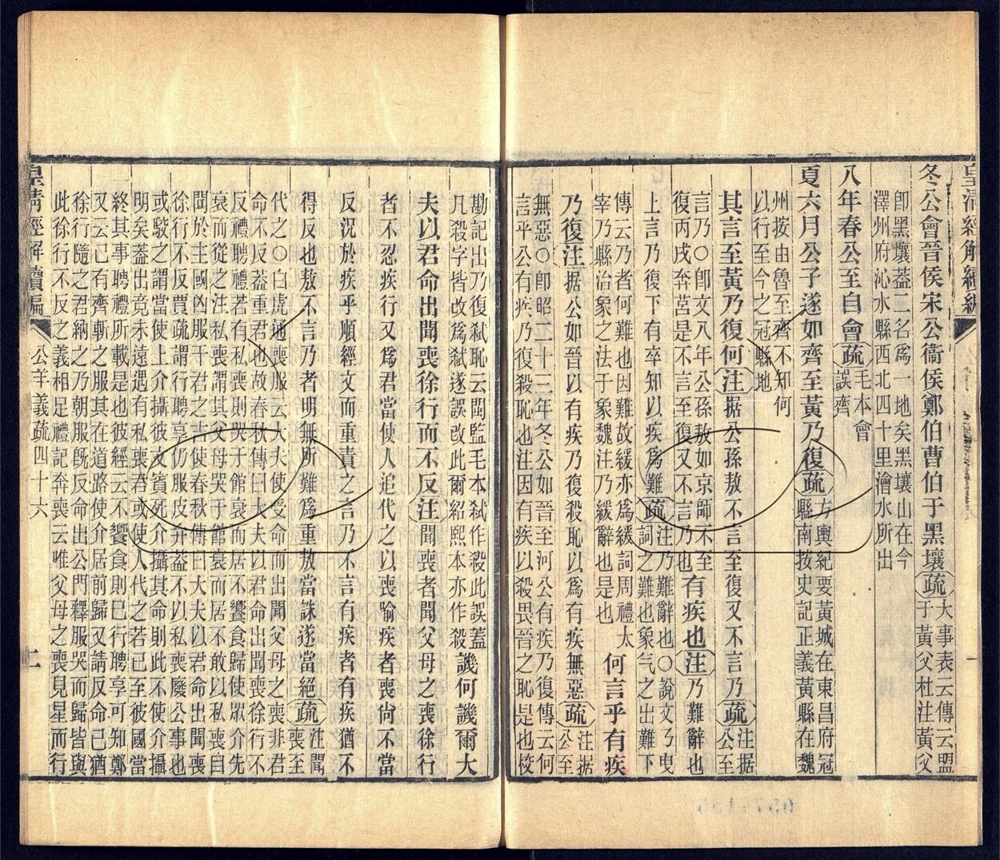 皇清經解續編
冬公會晉侯宋公衞侯鄭伯曹伯于黑壤疏大事表云傳云盟
于黃父杜注黃父
卽黑壤蓋二名爲一地矣黑壤山在今
澤州府沁水縣西北四十里澮水所出
八年春公至自會疏毛本會
誤齊
夏六月公子遂如齊至黃乃復疏方輿紀要黃城在東昌府冠
縣南按史記正義黃縣在魏
州按由魯至齊不知何
以行至今之冠縣地
其言至黃乃復何注据公孫敖不言至復又不言乃疏注据
公至
言乃○卽文八年公孫敖如京師不至
復丙戌奔莒是不言至復又不言乃也有疾也注乃難辭也
上言乃復下有卒知以疾爲難疏注乃難辭也○說文乃曳
詞之難也象气之出難下
傳云乃者何難也因難故緩亦爲緩詞周禮太
宰乃縣治象之法于象魏注乃緩辭也是也何言乎有疾
乃復注据公如晉以有疾乃復殺恥以爲有疾無惡疏注据
公至
無惡○卽昭二十三年冬公如晉至河公有疾乃復傳云何
言乎公有疾乃復殺恥也注因有疾以殺畏晉之恥是也校
勘記出乃復弒恥云閩監毛本弒作殺此誤蓋
凡殺字皆改爲弒遂誤改此爾紹熙本亦作殺譏何譏爾大
夫以君命出聞喪徐行而不反注聞喪者聞父母之喪徐行
者不忍疾行又爲君當使人追代之以喪喻疾者喪尙不當
反況於疾乎順經文而重責之言乃不言有疾者有疾猶不
得反也敖不言乃者明無所難爲重敖當誅遂當絕疏注聞
喪至
代之○白虎通喪服云大夫使受命而出聞父母之喪非君
命不反蓋重君也故春秋傳曰大夫以君命出聞喪徐行不
反禮聘禮若有私喪則哭于館衰而居不饗食歸使眾介先
衰而從之注私喪謂其父母哭于館衰而居不敢以私喪自
聞於主國凶服干君之吉使春秋傳曰大夫以君命出聞喪
徐行不反賈疏謂行聘享仍服皮弁蓋不以私喪廢公事也
或駮之謂當使上介攝彼文賓死介攝其命則此不使介攝
明矣蓋出竟未遠遇有私喪君或使人代之若已至彼國當
終其事聘禮所載是也彼經云不饗食則已行聘享可知鄭
又云已有齊斬之服其在道路使介居前歸又請反命己猶
徐行隨之君納之乃朝服旣反命出公門釋服哭而歸皆與
此徐行不反之義相足禮記奔喪云唯父母之喪見星而行
皇清經解續編
公羊義疏四十六
二